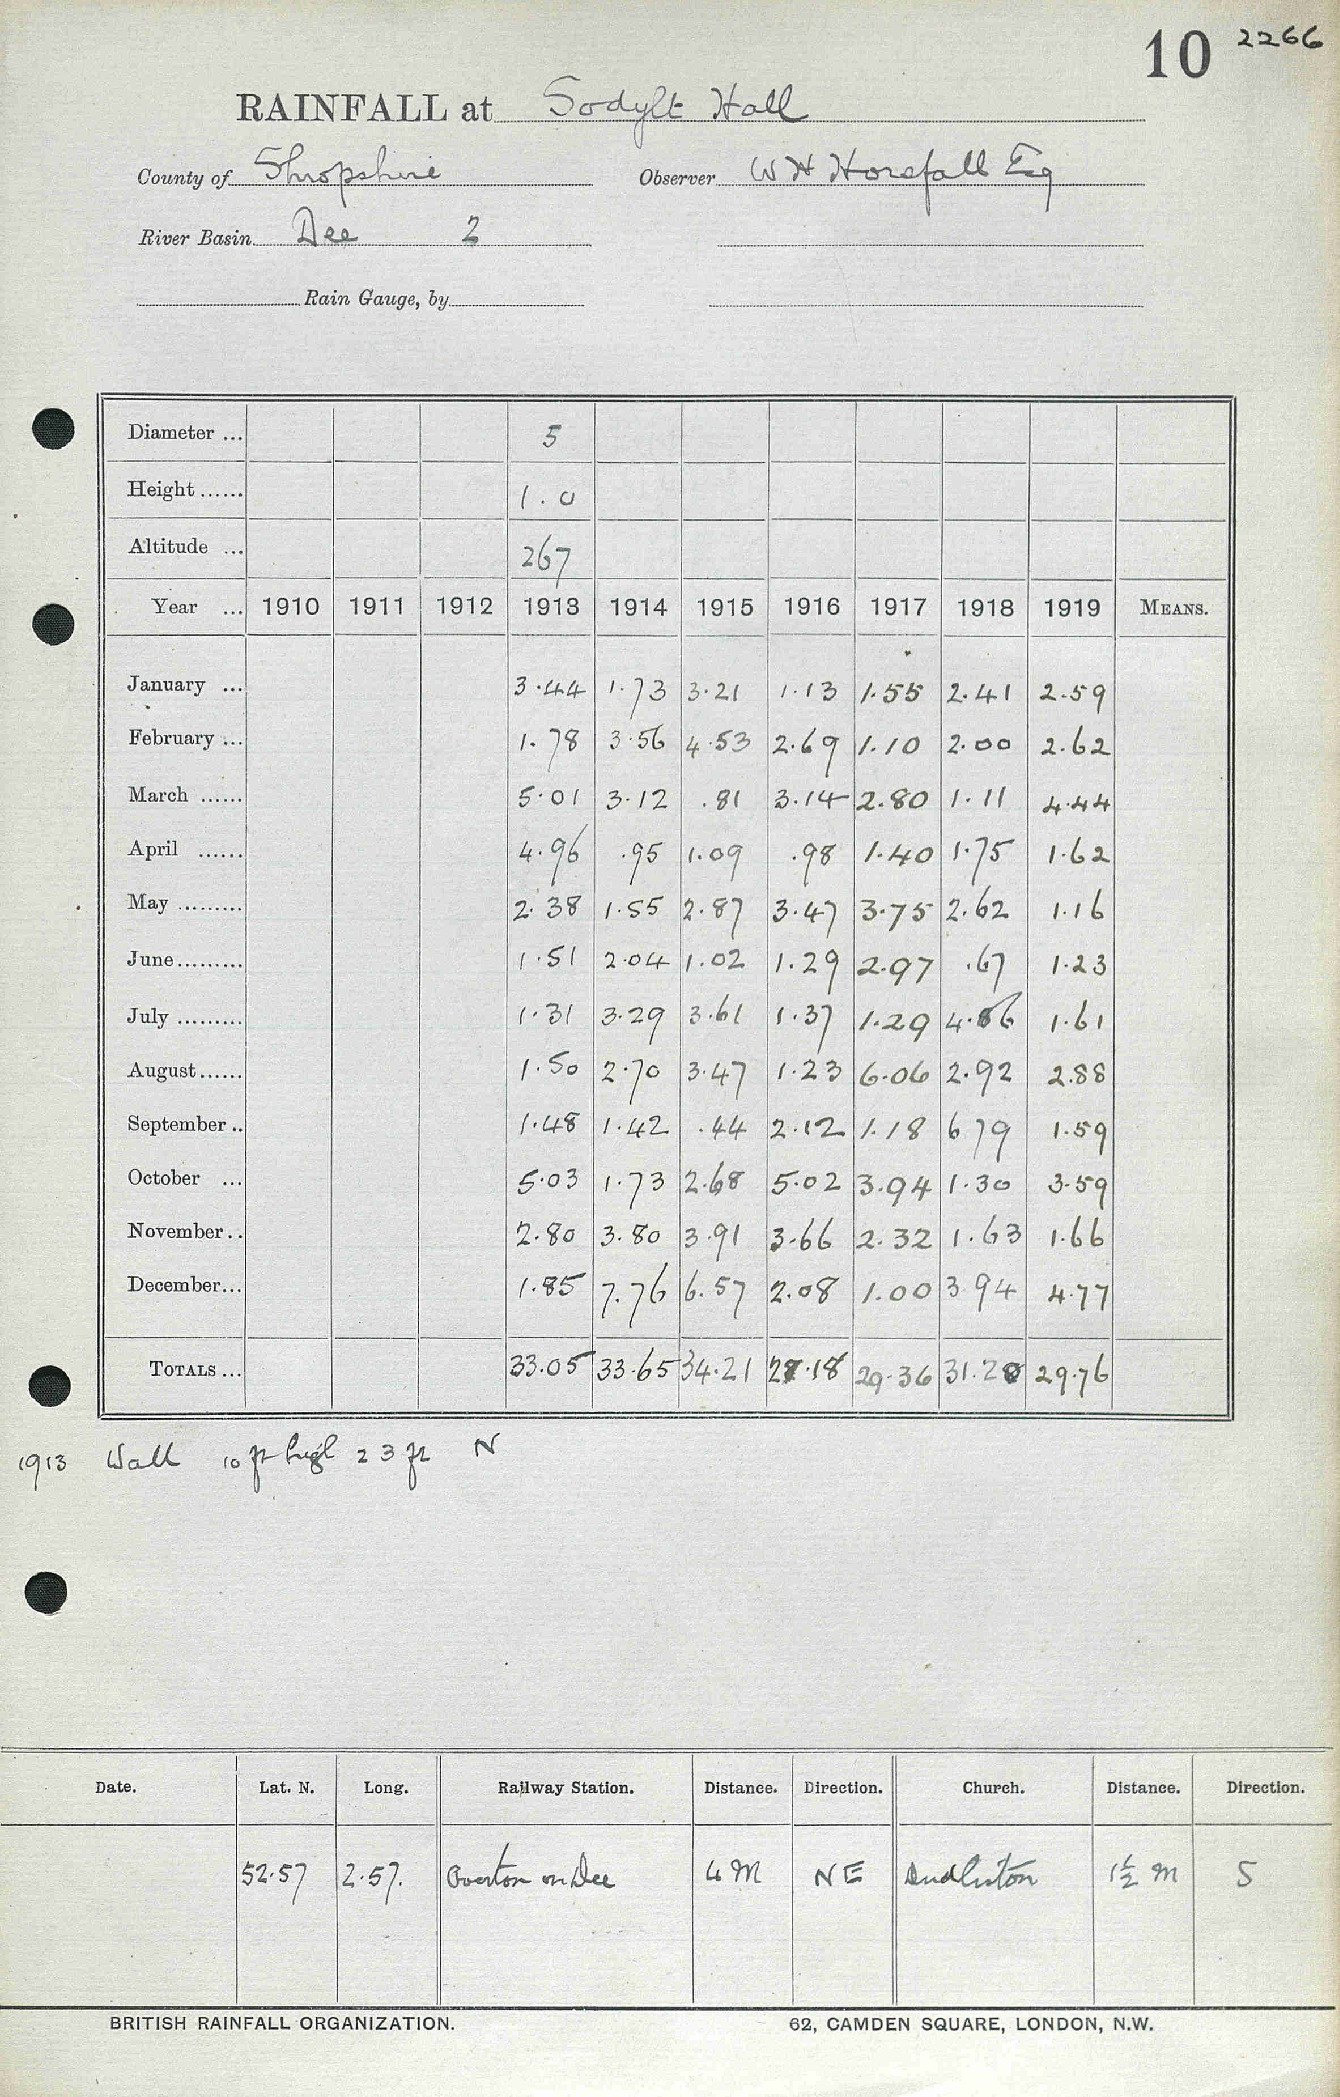 10 2266
RAINFALL at Sodylt Hall
County of Shropshire Observer W H Horsfall Esq
River Basin Dee 2
Rain Gauge, by
Diameter ... 5
Height ...... 1.0
Altitude ... 267
Year ... 1910 1911 1912 1913 1914 1915 1916 1917 1918 1919 MEANS.
January ... 3.44 1.73 3.21 1.13 1.55 2.41 2.59
February ... 1.78 3.56 4.53 2.69 1.10 2.00 2.62
March ...... 5.01 3.12 .81 3.14 2.80 1.11 4.44
April ...... 4.96 .95 1.09 .98 1.40 1.75 1.62
May ......... 2.38 1.55 2.87 3.47 3.75 2.62 1.16
June ......... 1.51 2.04 1.02 1.29 2.97 .67 1.23
July ......... 1.31 3.29 3.61 1.37 1.29 1.61
August ...... 1.50 2.70 3.47 1.23 6.06 2.92 2.88
September .. 1.48 1.42 .44 2.12 1.18 6 79 1.59
October ... 5.03 1.73 2.68 5.02 3.94 1.30 3.59
November .. 2.80 3.80 3.91 3.66 2.32 1.63 1.66
December ... 1.85 7.76 6.57 2.08 1.00 3.94 4.77
TOTALS ... 33.05 33.65 34.21 28.18 29.36 31.20 29.76
1913 Wall 10 ft high 23 ft N
Date. Lat. N. Long. Railway Station. Distance. Direction. Church. Distance. Direction.
52.57 2.57. Overton on Dee 4 M NE Dudleston 1½ M S
BRITISH RAINFALL ORGANIZATION. 62, CAMDEN SQUARE, LONDON, N.W.